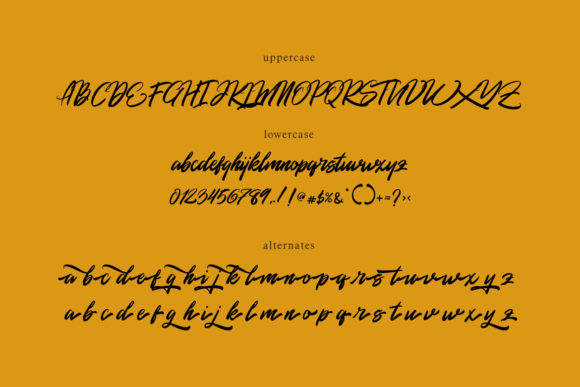 uppercase
ABCDEFGHIJKLMNOPQRSTUVWXYZ
lowercase
abcdefghijklmnopqrstuvwxyz
0123456789,.!!@#$%&*()+=?><
alternates
a b c d e f g h i j k l m n o p q r s t u v w x y z
a b c d e f g h i j k l m n o p q r s t u v w x y z